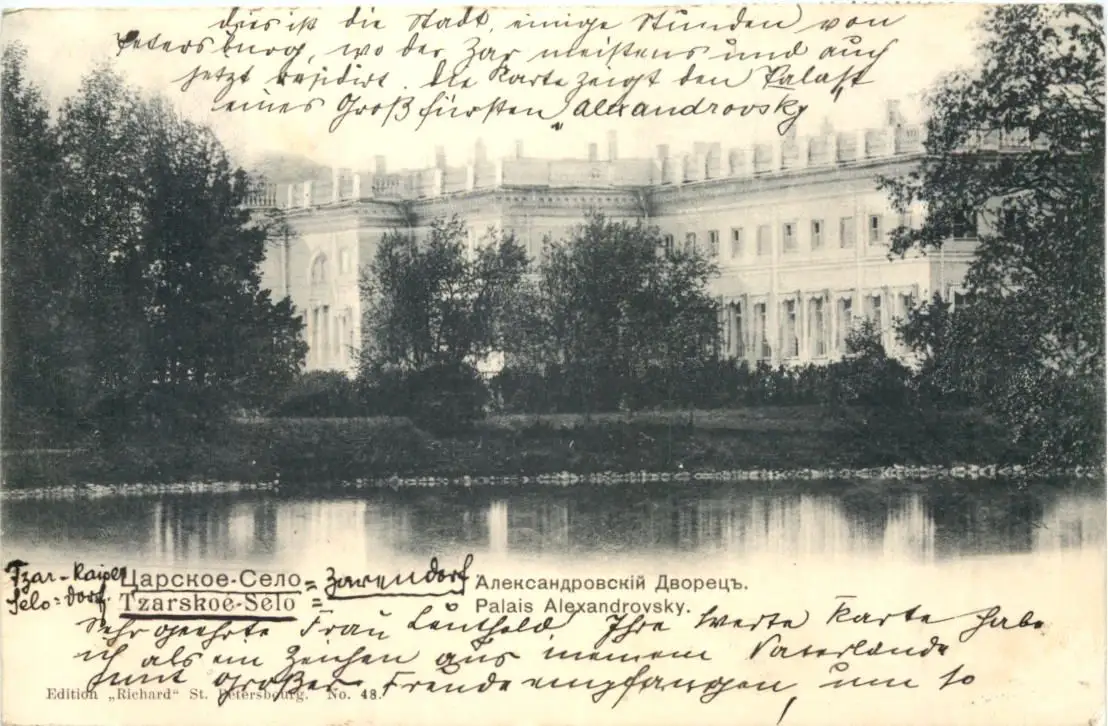 dies ist die Stadt, einige Stunden von
Petersburg, wo der Zar meistens und auch
jetzt residirt. Die Karte zeigt den Palast
eines Großfürsten Alexandrovsky
Tzar-Kaiser
Selo=Dorf.
Царское-Село = Zarendorf
Tzarskoé-Sélo =
Александровскій Дворецъ.
Palais Alexandrovsky.
Sehr geehrte Frau Leuthold! Ihre werte Karte habe
ich als ein Zeichen aus meinem Vaterlande
mit großer Freude empfangen, um so
Edition „Richard“ St. Petersbourg. No. 48.